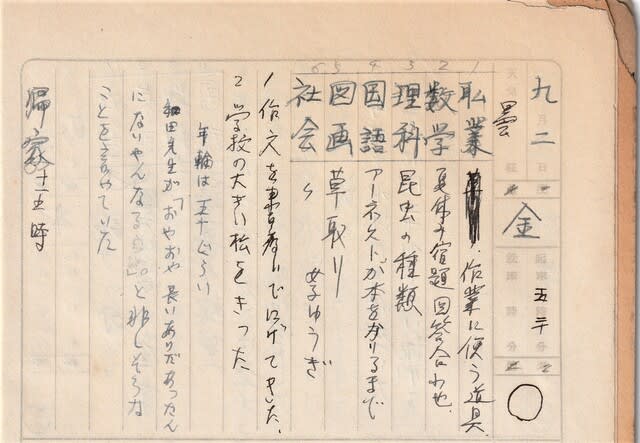 九月二日
曇
金
五 三
職業 作業に使う道具
数学 夏休の宿題回答合わせ
理科 昆虫の種類
国語 アーネストが本をかりるまで
図画 草取り
社会 〃 女子ゆうぎ
1 作文を書かないでにげてきた。
2 学校の大きい松をきった
年輪は五十ぐらい
和田先生が「おやおや長いありだあったん
になりやんなる
ことを言っていた
帰家 十五時